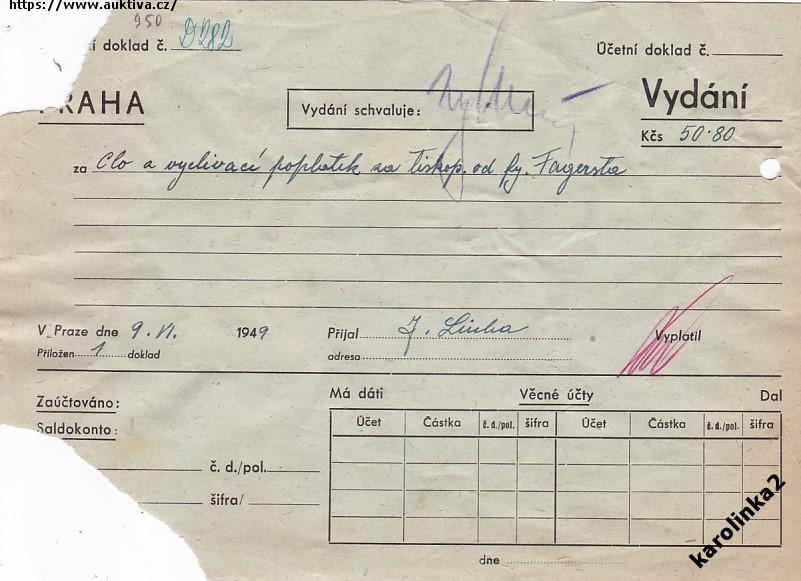 https://www.auktiva.cz/
950
í doklad č. D282
Účetní doklad č.
PRAHA
Vydání schvaluje:
Vydání
Kčs 50·80
za Clo a vyclívací poplatek za tiskop. od fy. Fagersta
V Praze dne 9. VI. 1949
Přijal J. Linha
Vyplatil
Přiložen 1 doklad
adresa
Má dáti Věcné účty Dal
Zaúčtováno:
Saldokonto:
Účet Částka č. d./pol. šifra Účet Částka č. d./pol. šifra
č. d./pol.
šifra/
dne
karolinka2